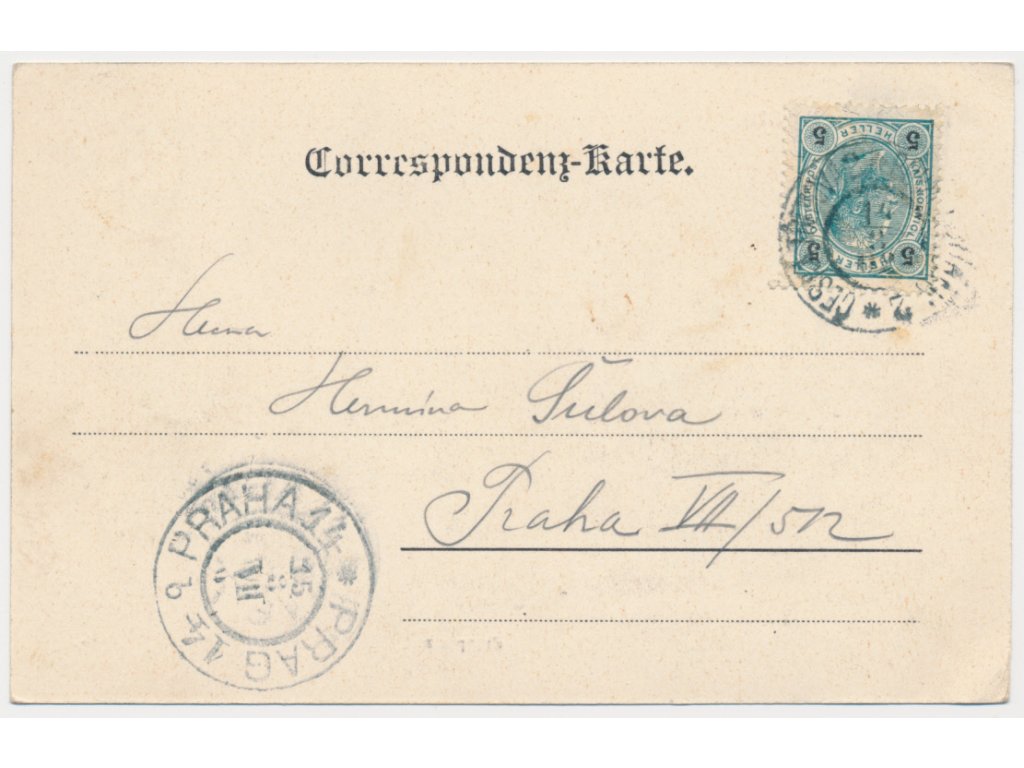 Correspondenz-Karte.
5 HELLER 5
5 HELLER 5
14
Hermina Šulova
Praha VII/512
PRAHA 14 * PRAG 14
15
VII